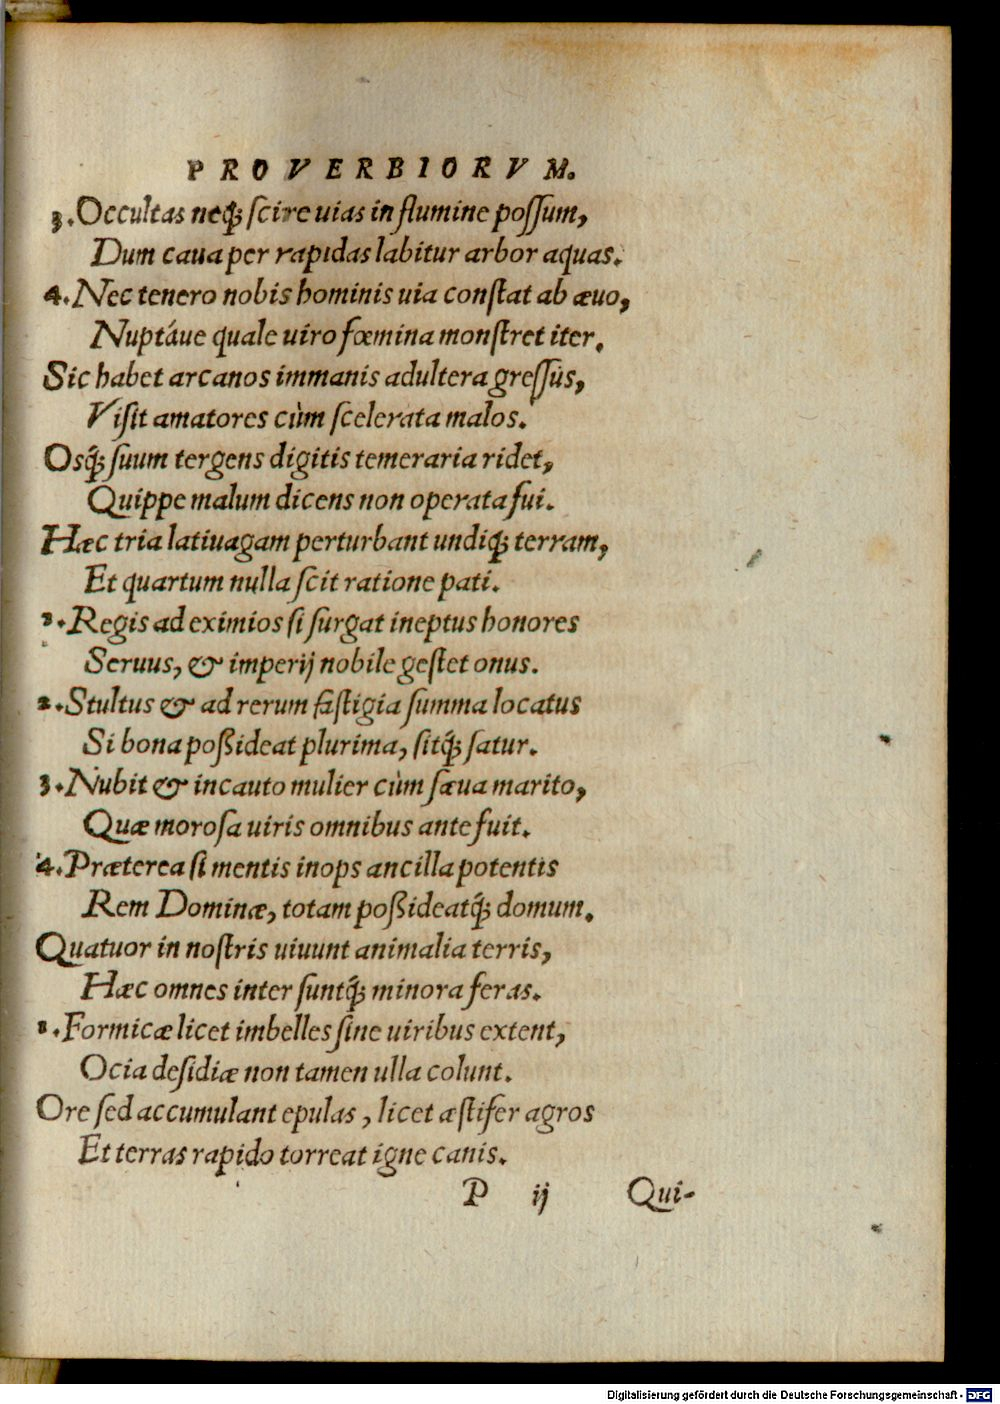 PROVERBIORVM.
3. Occultas neq́; ſcire uias in flumine poſſum,
Dum caua per rapidas labitur arbor aquas.
4. Nec tenero nobis hominis uia conſtat ab æuo,
Nuptáue quale uiro fœmina monſtret iter.
Sic habet arcanos immanis adultera greſſus,
Viſit amatores cùm ſcelerata malos.
Osq́; ſuum tergens digitis temeraria ridet,
Quippe malum dicens non operata fui.
Hæc tria latiuagam perturbant undiq́; terram,
Et quartum nulla ſcit ratione pati.
1. Regis ad eximios ſi ſurgat ineptus honores
Seruus, & imperij nobile geſtet onus.
2. Stultus & ad rerum faſtigia ſumma locatus
Si bona poßideat plurima, ſitq́; ſatur.
3. Nubit & incauto mulier cùm ſæua marito,
Quæ moroſa uiris omnibus ante fuit.
4. Præterea ſi mentis inops ancilla potentis
Rem Dominæ, totam poßideatq́; domum.
Quatuor in noſtris uiuunt animalia terris,
Hæc omnes inter ſuntq́; minora feras.
1. Formicæ licet imbelles ſine uiribus extent,
Ocia deſidiæ non tamen ulla colunt.
Ore ſed accumulant epulas, licet æſtifer agros
Et terras rapido torreat igne canis.
P ij Qui-
Digitalisierung gefördert durch die Deutsche Forschungsgemeinschaft - DFG